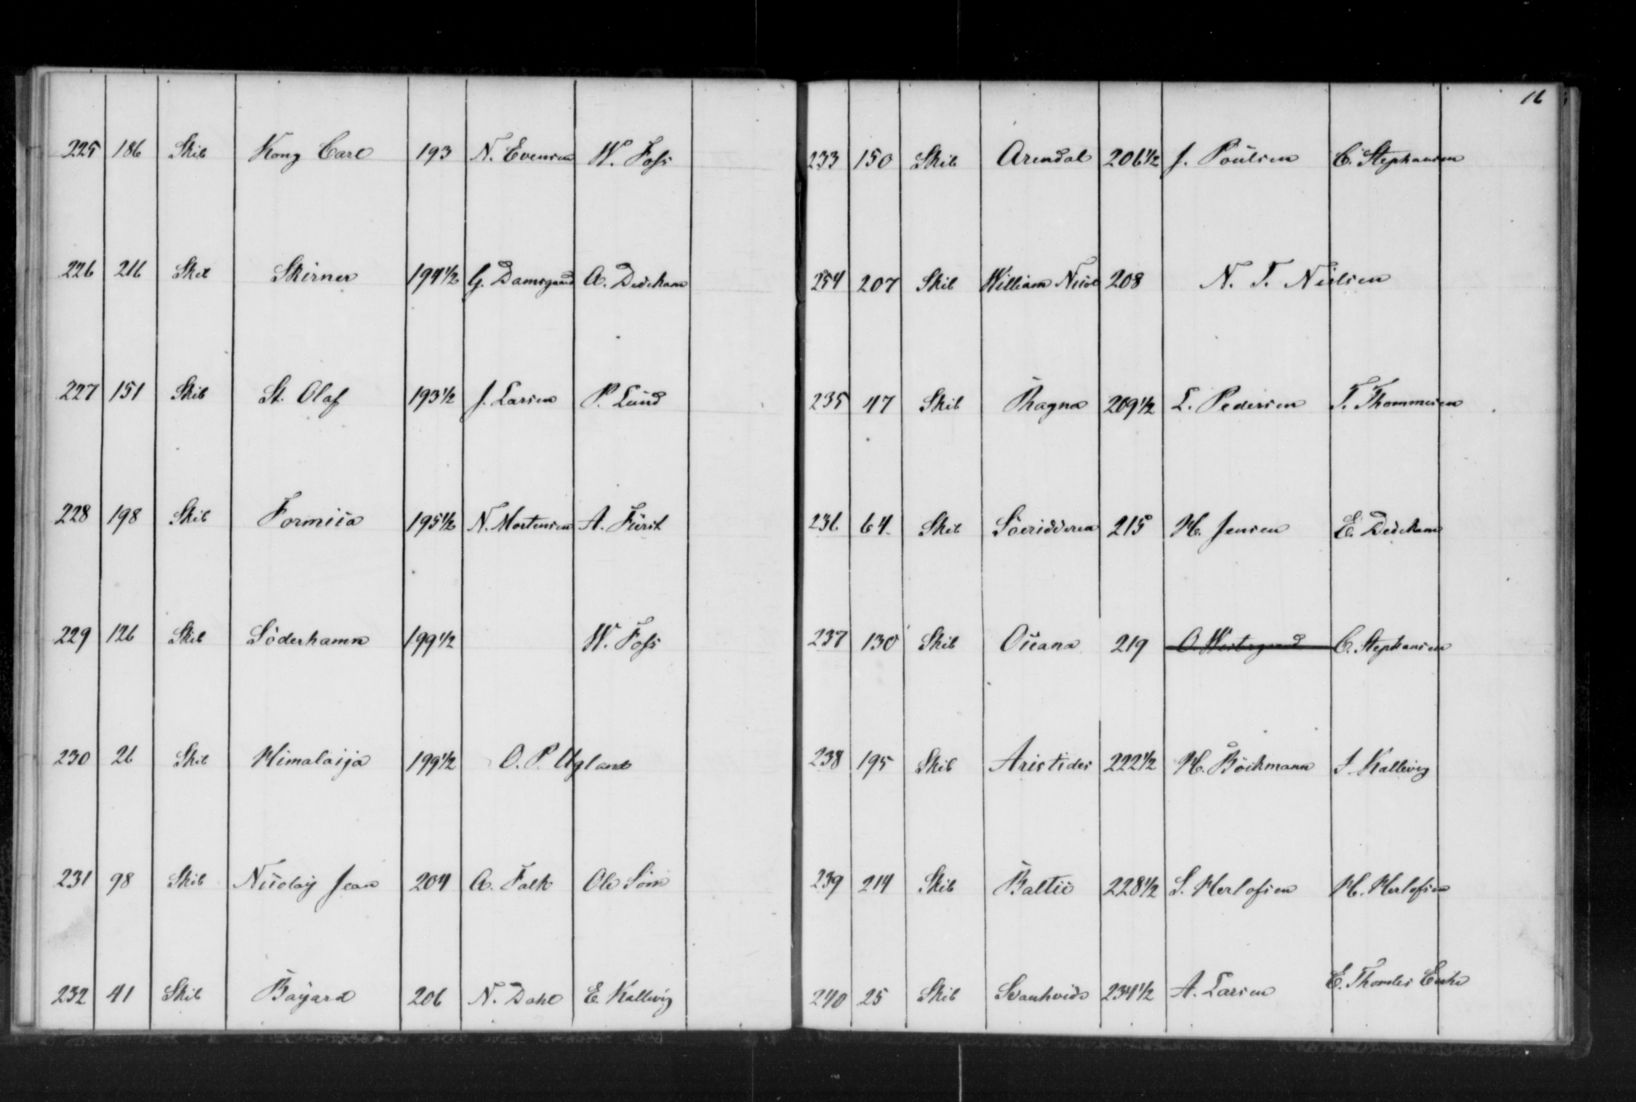 225 186 Skib Kong Carl 193 N. Evensen W. Foss
226 216 Skib Skirner 194½ G. Damsgaard A. Dedekam
227 151 Skib St. Olaf 193½ J. Larsen P. Lund
228 198 Skib Formica 195½ N. Mortensen A. Fürst
229 126 Skib Söderhamn 199½ W. Foss
230 26 Skib Himalaija 199½ O. P. Ugland
231 98 Skib Nicolaÿ Jean 204 A. Falk Ole Söm
232 41 Skib Bayard 206 N. Dahl E. Kallevig
16
233 150 Skib Arendal 206½ J. Poulsen C. Stephansen
234 207 Skib William Nicol 208 N. T. Nielsen
235 47 Skib Ragna 209½ L. Pedersen T. Thommesen
236 64 Skib Söeridderen 215 H. Jensen E. Dedekam
237 130 Skib Oceana 219 O. Westergaard C. Stephansen
238 195 Skib Aristides 222½ H. Böckmann S. Kallevig
239 214 Skib Baltic 228½ S. Herlofsen H. Herlofsen
240 25 Skib Svanhvide 234½ A. Larsen E. Enke